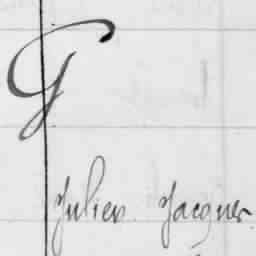 G
Julien Jacques